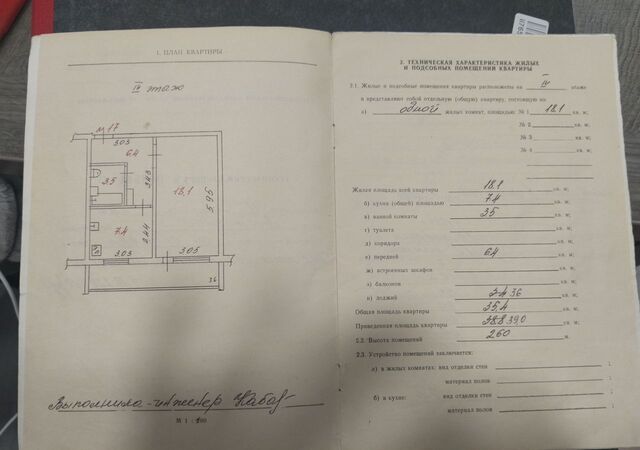 1. ПЛАН КВАРТИРЫ
IV этаж
М 17
303
6.4
3.5
3.43
18.1
5.95
7.4
2.44
3.05
3.05
3.6
Выполнила-инженер
М 1 :
2. ТЕХНИЧЕСКАЯ ХАРАКТЕРИСТИКА ЖИЛЫХ
И ПОДСОБНЫХ ПОМЕЩЕНИЙ КВАРТИРЫ
2.1. Жилые и подсобные помещения квартиры расположены на IV этаже
и представляют собой отдельную (общую) квартиру, состоящую из
а) одной жилых комнат, площадью: № 1 18.1 кв. м;
№ 2 кв. м;
№ 3 кв. м;
№ 4 кв. м;
Жилая площадь всей квартиры 18.1 кв. м;
б) кухни (общей) площадью 7.4 кв. м;
в) ванной комнаты 3.5 кв. м;
г) туалета кв. м;
д) коридора кв. м;
е) передней 6.4 кв. м;
ж) встроенных шкафов кв. м;
з) балконов кв. м;
и) лоджий 3.6 кв. м;
Общая площадь квартиры 35,4 кв. м;
Приведенная площадь квартиры 38.8 39,0 кв. м;
2.2. Высота помещений 2.60 м.
2.3. Устройство помещений заключается:
а) в жилых комнатах: вид отделки стен ;
материал полов ;
б) в кухне: вид отделки стен ;
материал полов ;